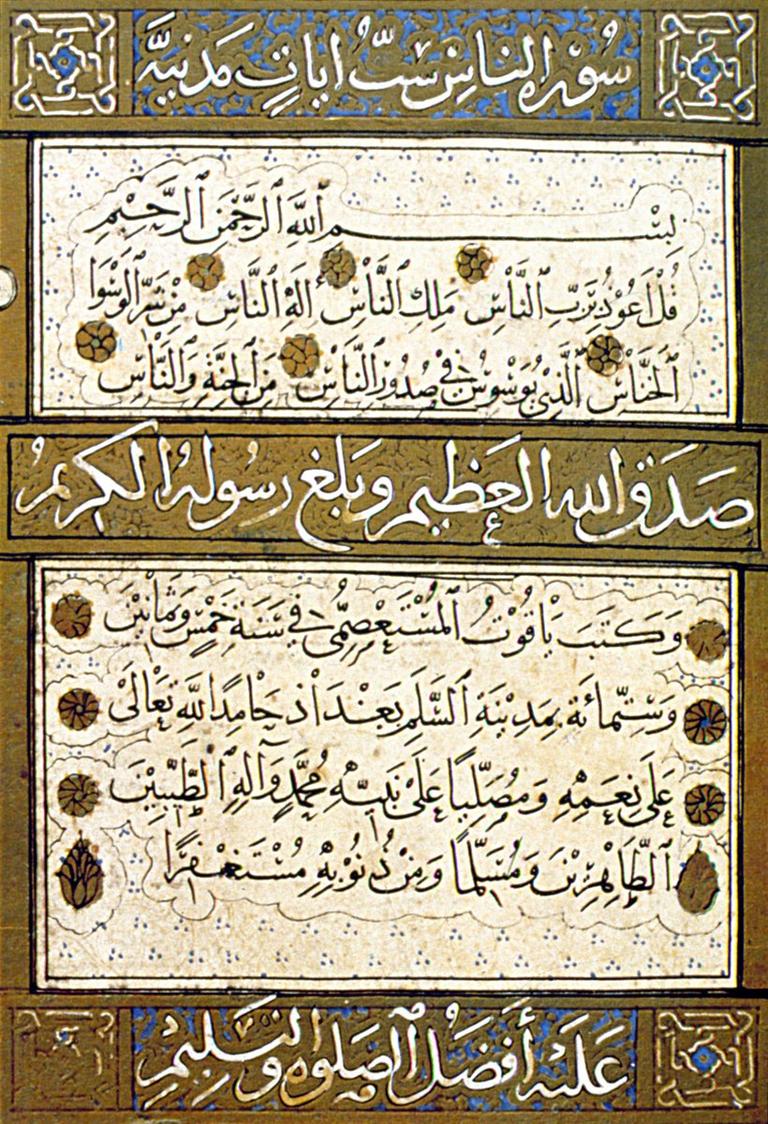 سورة الناس ست ايات مدنية
بِسْمِ ٱللَّهِ ٱلرَّحْمَٰنِ ٱلرَّحِيمِ
قُلْ أَعُوذُ بِرَبِّ ٱلنَّاسِ مَلِكِ ٱلنَّاسِ إِلَٰهِ ٱلنَّاسِ مِنْ شَرِّ ٱلْوَسْوَا
ٱلْخَنَّاسِ ٱلَّذِي يُوَسْوِسُ فِي صُدُورِ ٱلنَّاسِ مِنَ ٱلْجِنَّةِ وَٱلنَّاسِ
صَدَقَ الله العظيم وبلغ رسوله الكريم
وَكَتَبَ يَاقُوتُ ٱلْمُسْتَعْصِمِيّ فِي سَنَةِ خَمْسٍ وَثَمَانِينَ
وَسِتِّمِائَة بِمَدِينَةِ ٱلسَّلَمِ بَغْدَاذ حَامِدًا لِلَّهِ تَعَالَى
عَلَى نِعَمِهِ وَمُصَلِّيًا عَلَى نَبِيِّهِ مُحَمَّدٍ وَآلِهِ ٱلطَّيِّبِينَ
ٱلطَّاهِرِينَ وَمُسَلِّمًا وَمِنْ ذُنُوبِهِ مُسْتَغْفِرًا
عَلَيْهِ أَفْضَلُ ٱلصَّلَوٰة وَالتَّسْلِيمِ